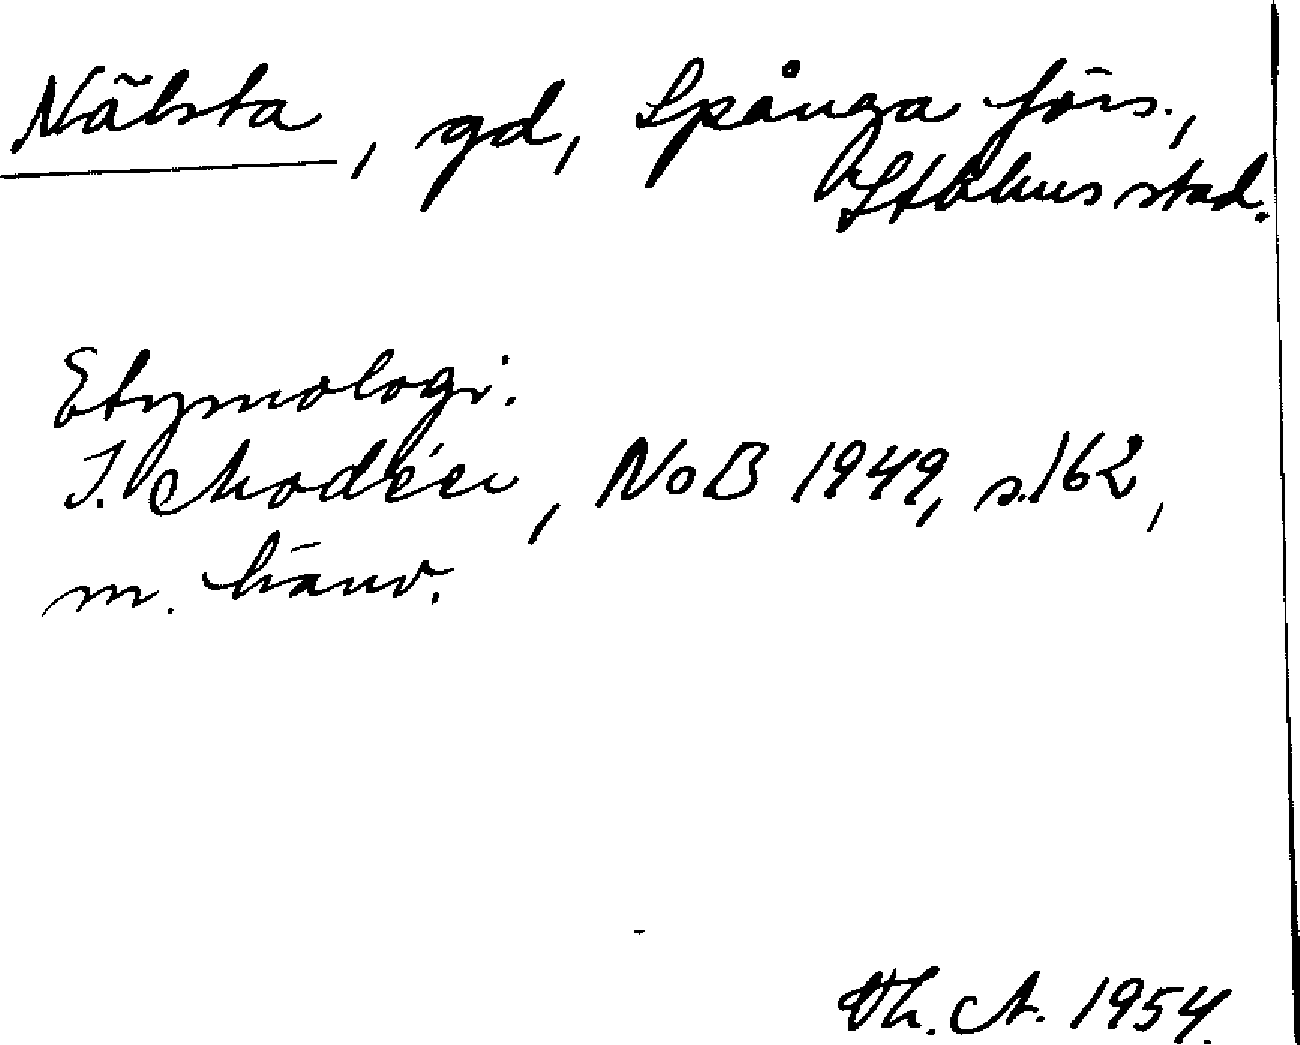 Nälsta, gd, Spånga förs.,
Sthlms stad.
Etymologi.
I. Modéer, NoB 1949, s. 162,
m. hänv.
Th. A. 1954.